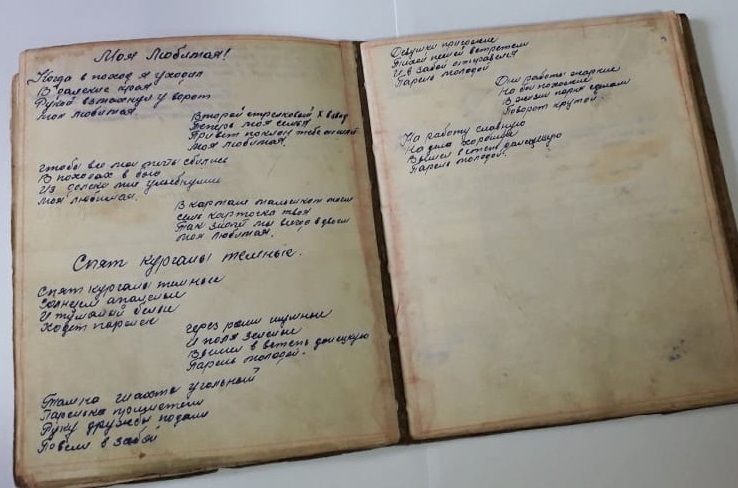 Моя Любимая!
Когда в поход я уходил
В далекие края
Рукой взмахнул у ворот
Моя любимая
Второй стрелковый х взвод
Теперь моя семья
Привет поклон тебе он шлет
Моя любимая.
чтобы все мои мечты сбылись
В походах в бою
Из далека мне улыбнулись
Моя любимая.
В кармане маленьком моем
есть карточка твоя
Так значит мы всегда вдвоем
Моя любимая.
Спят курганы темные.
Спят курганы темные
Солнцем опаленые
И туманы белые
Ходят
через рощи шумные
И поля зеленые
Вышел в степь донецкую
Парень молодой.
Там на шахте угольной
Паренька приметили
Руку дружбы подали
Повели в забой
Девушки пригожие
Тихой песней встретили
И в забой отправился
Парень молодой
Дни работы жаркие
На бои похожие
В жизни парня сделали
Поворот крутой.
На работу славную
На дела хорошие
Вышел в степь донецкую
Парень молодой.